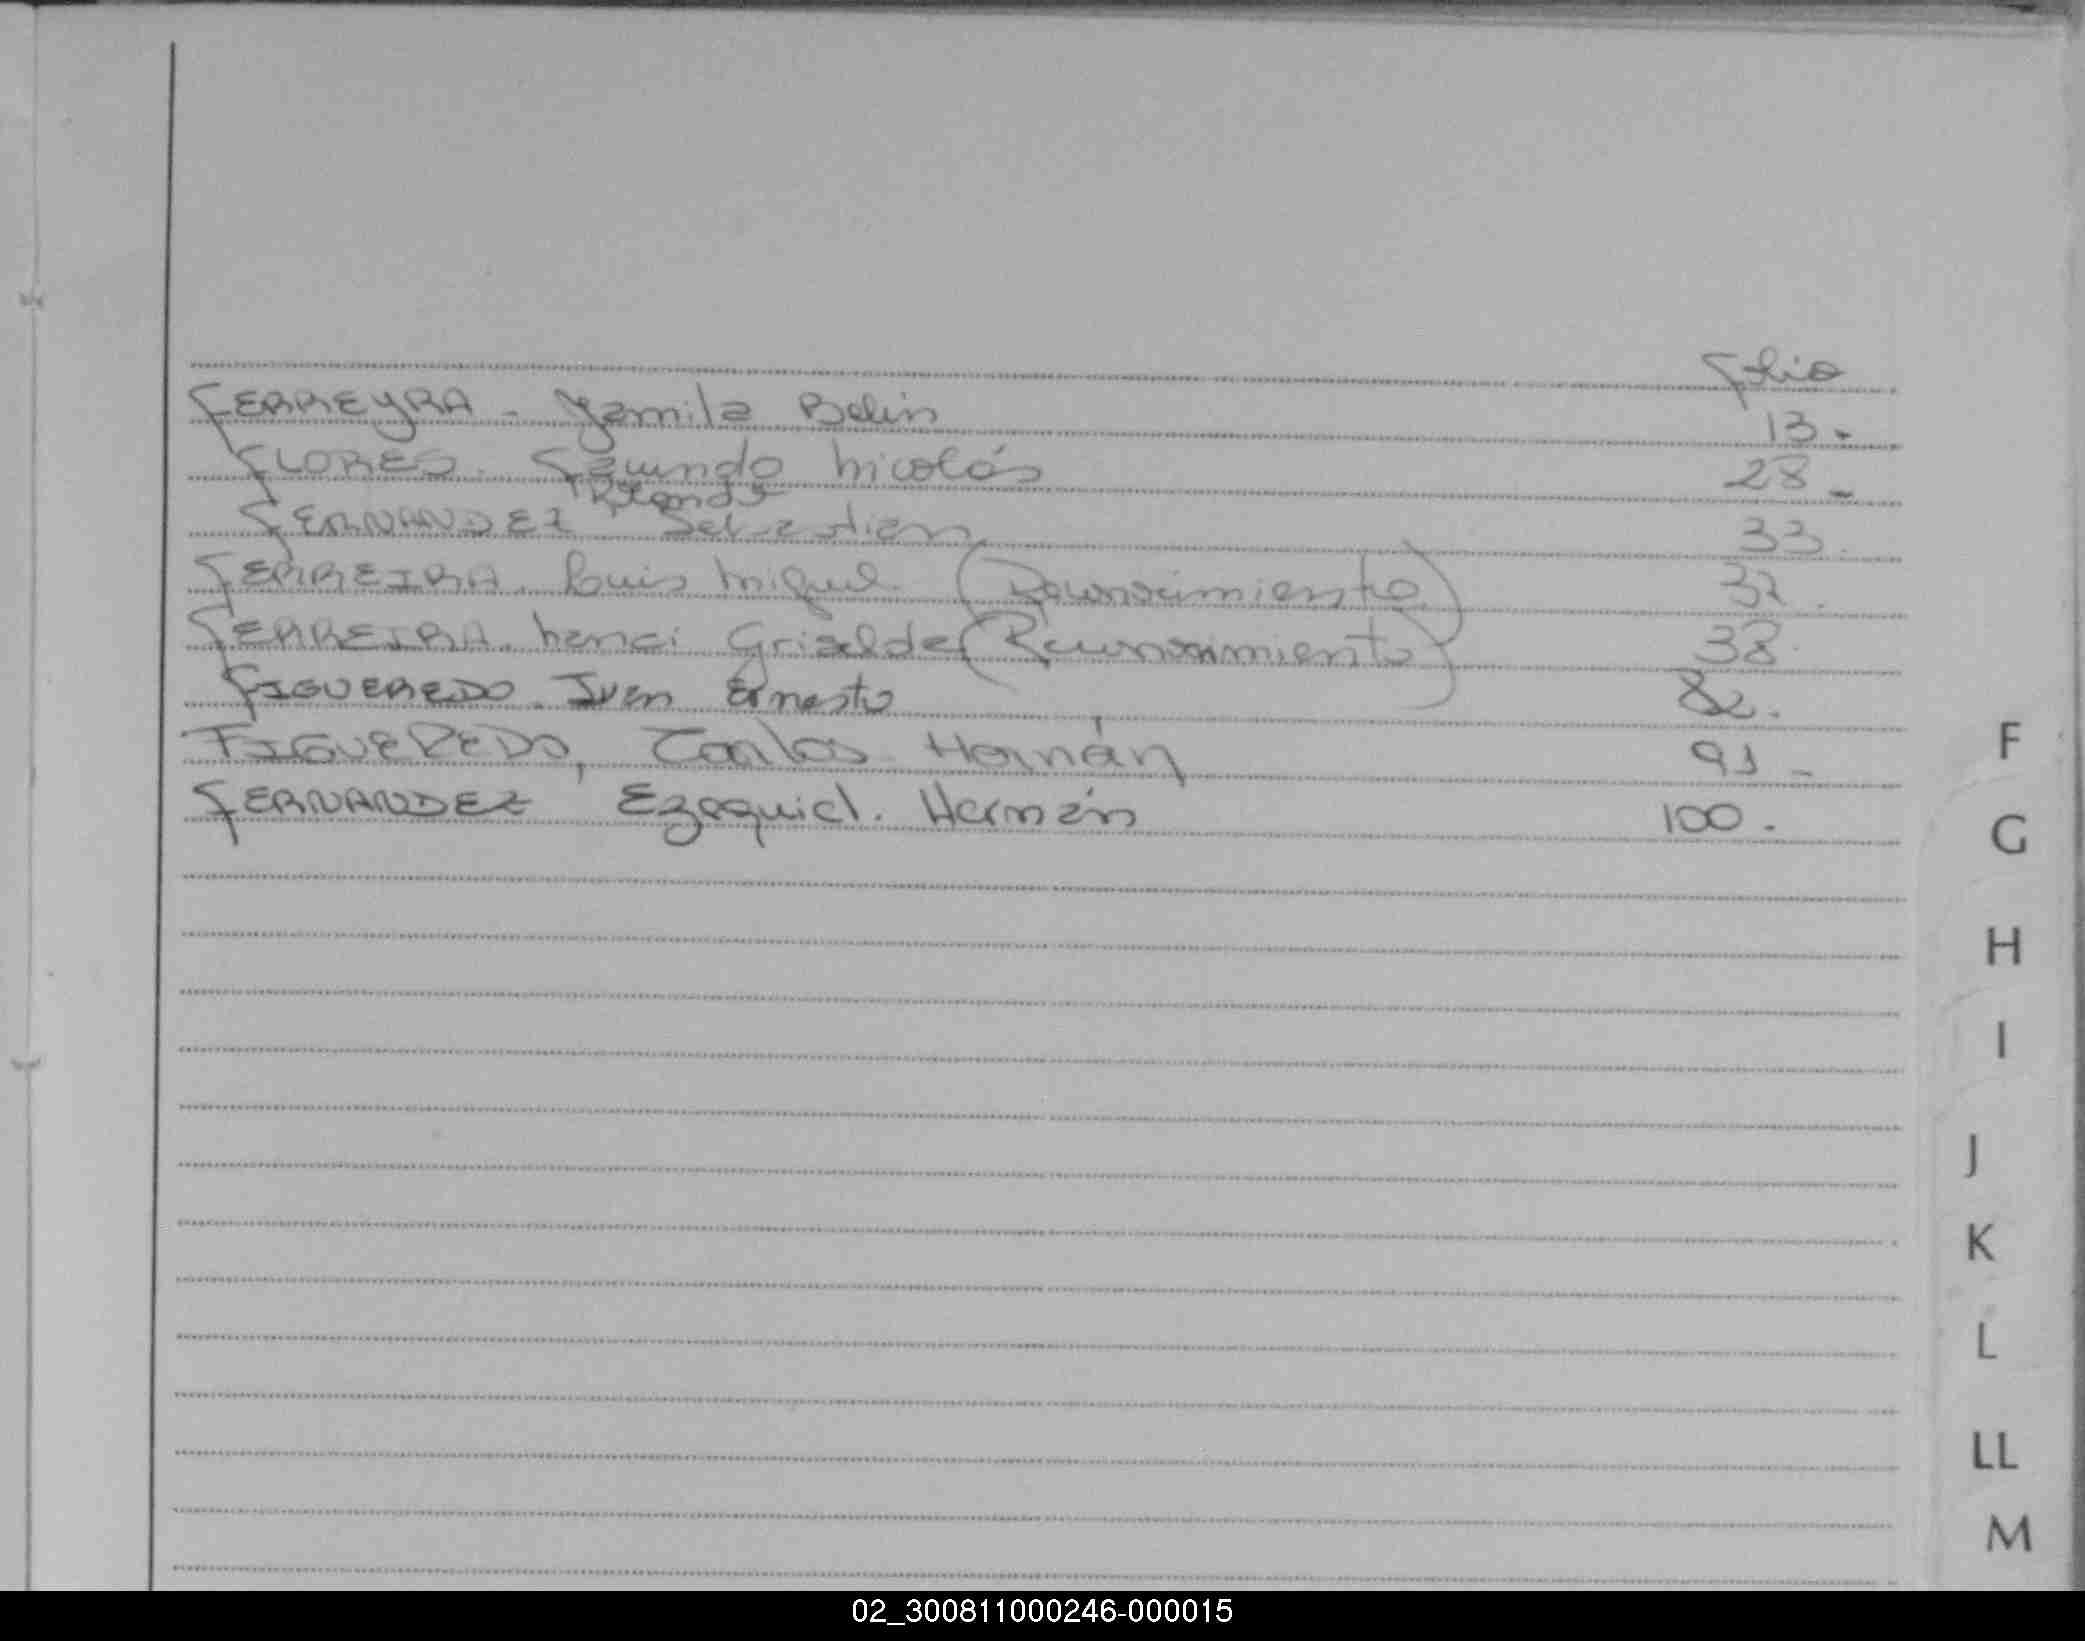 Folio
FERREYRA - Yamila Belén 13.-
FLORES. Facundo Nicolás 28 -
Rolando
FERNANDEZ Sebastian 33.
FERREIRA. Luis Miguel. (Reconocimiento) 37.
FERREIRA. Nanci Griselda (Reconocimiento) 38.
FIGUEREDO. Ivan Ernesto 82.
FIGUEREDO, Carlos Hernán 91 -
FERNANDEZ Ezequiel. Hernán 100.
F
G
H
I
J
K
L
LL
M
02_300811000246-000015